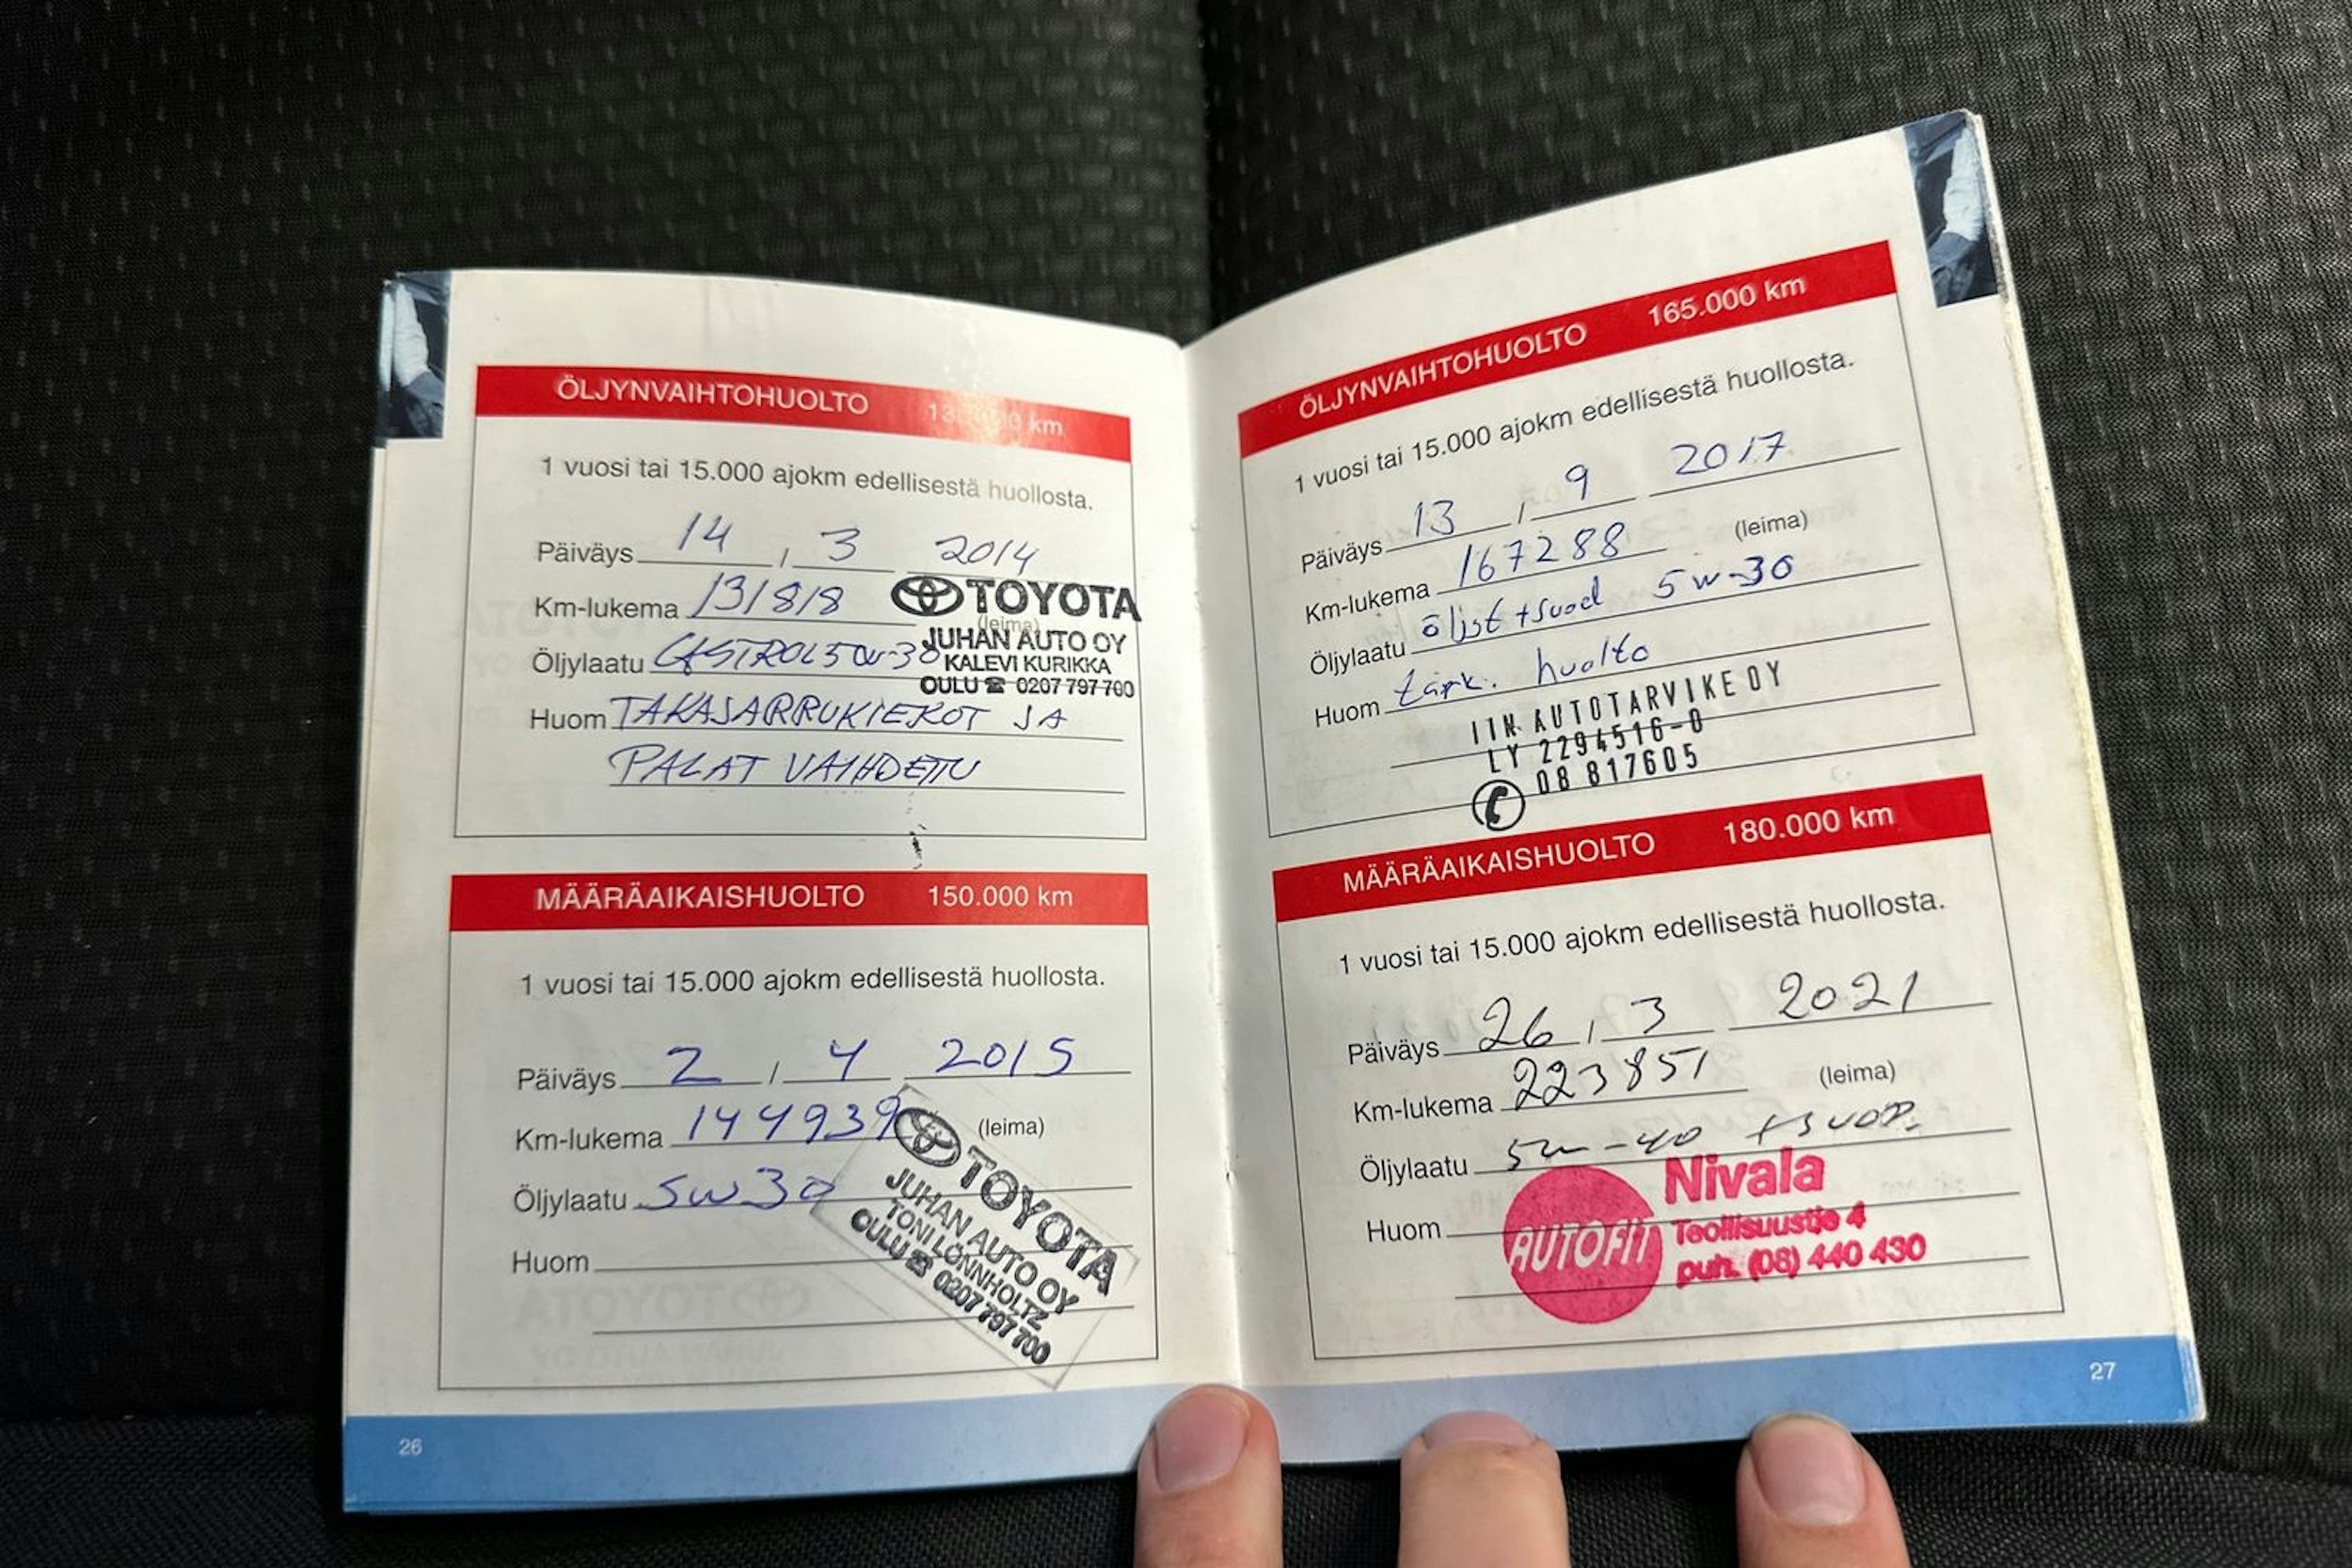 ÖLJYNVAIHTOHUOLTO km
1 vuosi tai 15.000 ajokm edellisestä huollosta.
Päiväys 14 , 3 2014
Km-lukema 131818
(leima)
TOYOTA
JUHAN AUTO OY
KALEVI KURIKKA
OULU ☎ 0207 797 700
Öljylaatu CASTROL 5W-30
Huom TAKAJARRUKIEKOT JA
PALAT VAIHDETTU
MÄÄRÄAIKAISHUOLTO 150.000 km
1 vuosi tai 15.000 ajokm edellisestä huollosta.
Päiväys 2 / 4 2015
Km-lukema 144939 (leima)
Öljylaatu 5W30
Huom
TOYOTA
JUHAN AUTO OY
TONI LÖNNHOLTZ
OULU ☎ 0207 797 700
26
ÖLJYNVAIHTOHUOLTO 165.000 km
1 vuosi tai 15.000 ajokm edellisestä huollosta.
Päiväys 13 , 9 2017
Km-lukema 167288 (leima)
Öljylaatu öljyt + suod 5w-30
Huom tark. huolto
IIN AUTOTARVIKE OY
LY 2294516-0
08 817605
MÄÄRÄAIKAISHUOLTO 180.000 km
1 vuosi tai 15.000 ajokm edellisestä huollosta.
Päiväys 26 , 3 2021
Km-lukema 223851 (leima)
Öljylaatu 5w-40 + SUOD.
Huom
AUTOFIT
Nivala
Teollisuustie 4
puh. (08) 440 430
27